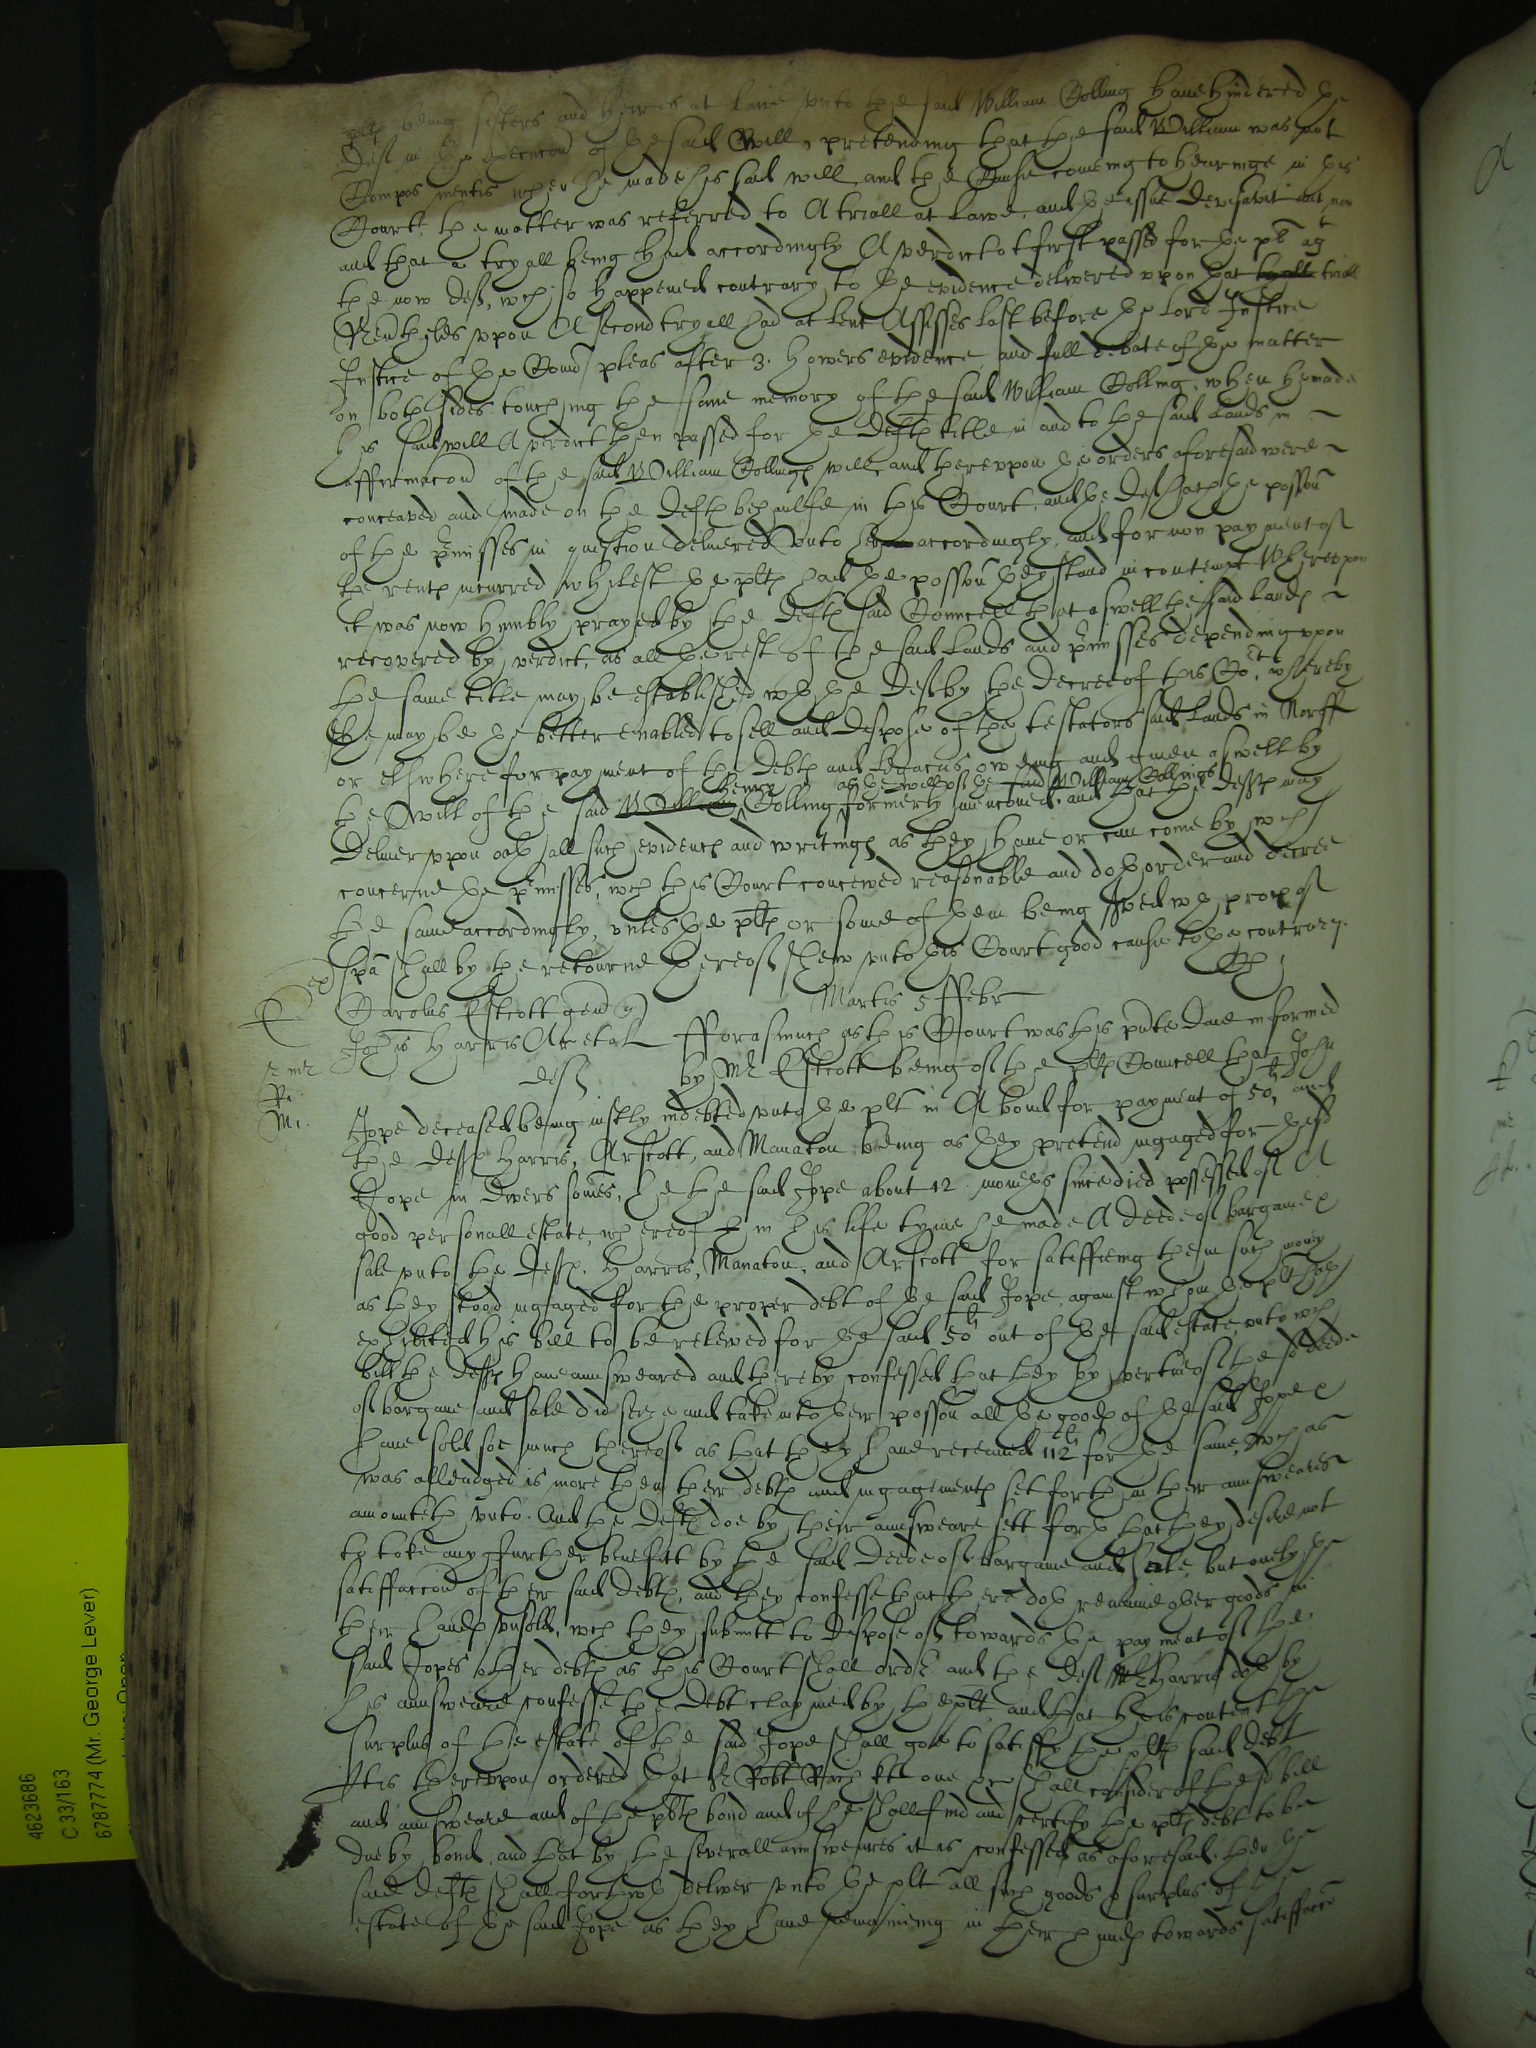 pltes being sisters and heires at Lawe unto the said William Colling have hindered the
Deft in the execucon of the said Will, pretending that the said William was not
Compos mentis when he made his said will, and the Cause comeing to hearinge in this
Court, the matter was referred to A triall at Lawe, and the issue devisavit aut non
and that a tryall being had accordingly A verdict at first passed for the plt agt
the now Deft, wch so happened contrary to the evidence delivered upon that triall
Nevertheles upon A second tryall had at Lent Assises Last before the Lord Justice
Justice of the Comon pleas after 3. howers evidence and full debate of the matter
on both sides touching the sane memory of the said William Colling, when he made
his said will A verdict then passed for the Defts title in and to the said Lands in
affirmacon of the said William Collings will, and thereupon the orders aforesaid were
conceaved and made on the Defts behaulfe in this Court, and the Deft hath the possion
of the pmisses in question delivered unto her accordingly, and for non payment of
the rents incurred whilest the plts had the possion they stand in contempt Whereupon
it was now humbly prayed by the Defts said Councell that aswell the said Lands
recovered by verdict, as all the rest of the said Lands and pmisses depending upon
the same title may be established wth the Deft by the Decree of this Cort, whereby
she may be the better enabled to sell and dispose of the testators said Lands in Norff
or elswhere for payment of the Debts and Legacies oweing and given aswell by
the Will of the said Henry Colling formerly menconed, as the will of the said William Collings and that the Defts may
Deliver upon oath all such evidences and writings as they have or can come by wch
concerne the pmisses, wch this Court conceived reasonable and doth order and decree
the same accordingly, unles the plts or some of them being served wth proces of
spa shall by the retourne thereof shew unto this Court good cause to the contrary.
Martis 5 ffebr
Carolus Estcott gen q
Johes Harris Ar et al Defts
fforasmuch as this Court was this pnte Daie informed
by Mr Estcott being of the plts Councell that John
Jope deceased being justly indebted unto the plt in A bond for payment of 50li, and
the Defts Harris, Arscott, and Manaton being as they pretend ingaged for the sd
Jope in divers somes, he the said Jope about 12. moneths since died possessed of A
good personall estate, whereof in his life tyme he made A deede of bargaine &
sale unto the Defts. Harris, Manaton, and Arscott for satisfieing them such money
as they stood ingaged for the proper debt of the said Jope, against whom the plt hath
exhibited his bill to be releived for the said 50li out of the said estate, unto wch
bill the Defts have answeared and thereby confessed that they by vertue of the sd deede
of bargaine and sale did seize and take into their possion all the goods of the said Jope &
have sold soe much thereof as that they have receaued 112li for the same, wch as
was alleadged is more then their debts and ingagements set forth in their answeares
amounteth unto. And the Defts doe by their answeare sett forth that they desire not
to take any further benefitt by the said Deede of bargaine and Sale, but onely the
satisfaccon of their said Debts, and they confesse that there doth remaine other goods in
their hands unsold, wch they submitt to dispose of towards the payment of the
said Jopes other debts as this Court shall order. and the Deft Mr Harris doth by
his answeare confesse the Debt claymed by the plt, and that he is content the
surplus of the estate of the said Jope shall goe to satisfy the plts said Debt
It is thereupon ordered that Sr Robt Rich kt one &c shall consider of the sd bill
and answeare and of the plts bond and if he shall find and certify the plts debt to be
due by bond, and that by the severall answeares it is confessed as aforesaid. then the
said Defts shall forthwth deliver unto the plt all such goods & surplus of the
estate of the said Jope as they have remaineing in their hands towards satisfaccon
4623686
C 33/163
6787774 (Mr. George Lever)